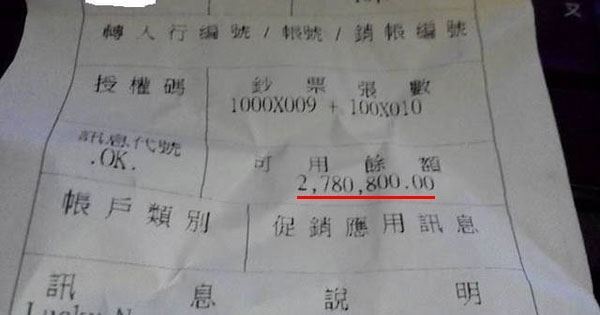 轉入行編號/帳號/銷帳編號
授權碼
鈔票張數
1000X009 + 100X010
訊息代號
.OK.
可用餘額
2,780,800.00
帳戶類別
促銷應用訊息
訊息說明